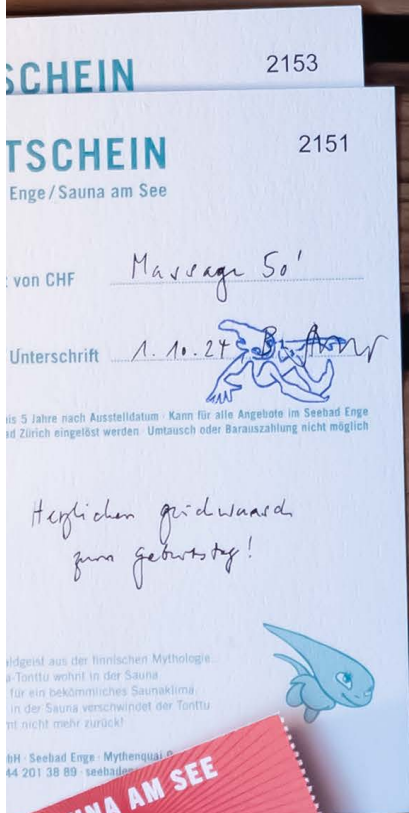 SCHEIN
2153
TSCHEIN
2151
Enge / Sauna am See
von CHF Massage 50'
Unterschrift 1.10.24
is 5 Jahre nach Ausstelldatum · Kann für alle Angebote im Seebad Enge
ad Zürich eingelöst werden · Umtausch oder Barauszahlung nicht möglich
Herzlichen glückwunsch
zum geburtstag!
ldgeist aus der finnischen Mythologie.
a-Tonttu wohnt in der Sauna
für ein bekömmliches Saunaklima.
in der Sauna verschwindet der Tonttu
mt nicht mehr zurück!
bH · Seebad Enge · Mythenquai
44 201 38 89 · seebaden
NA AM SEE